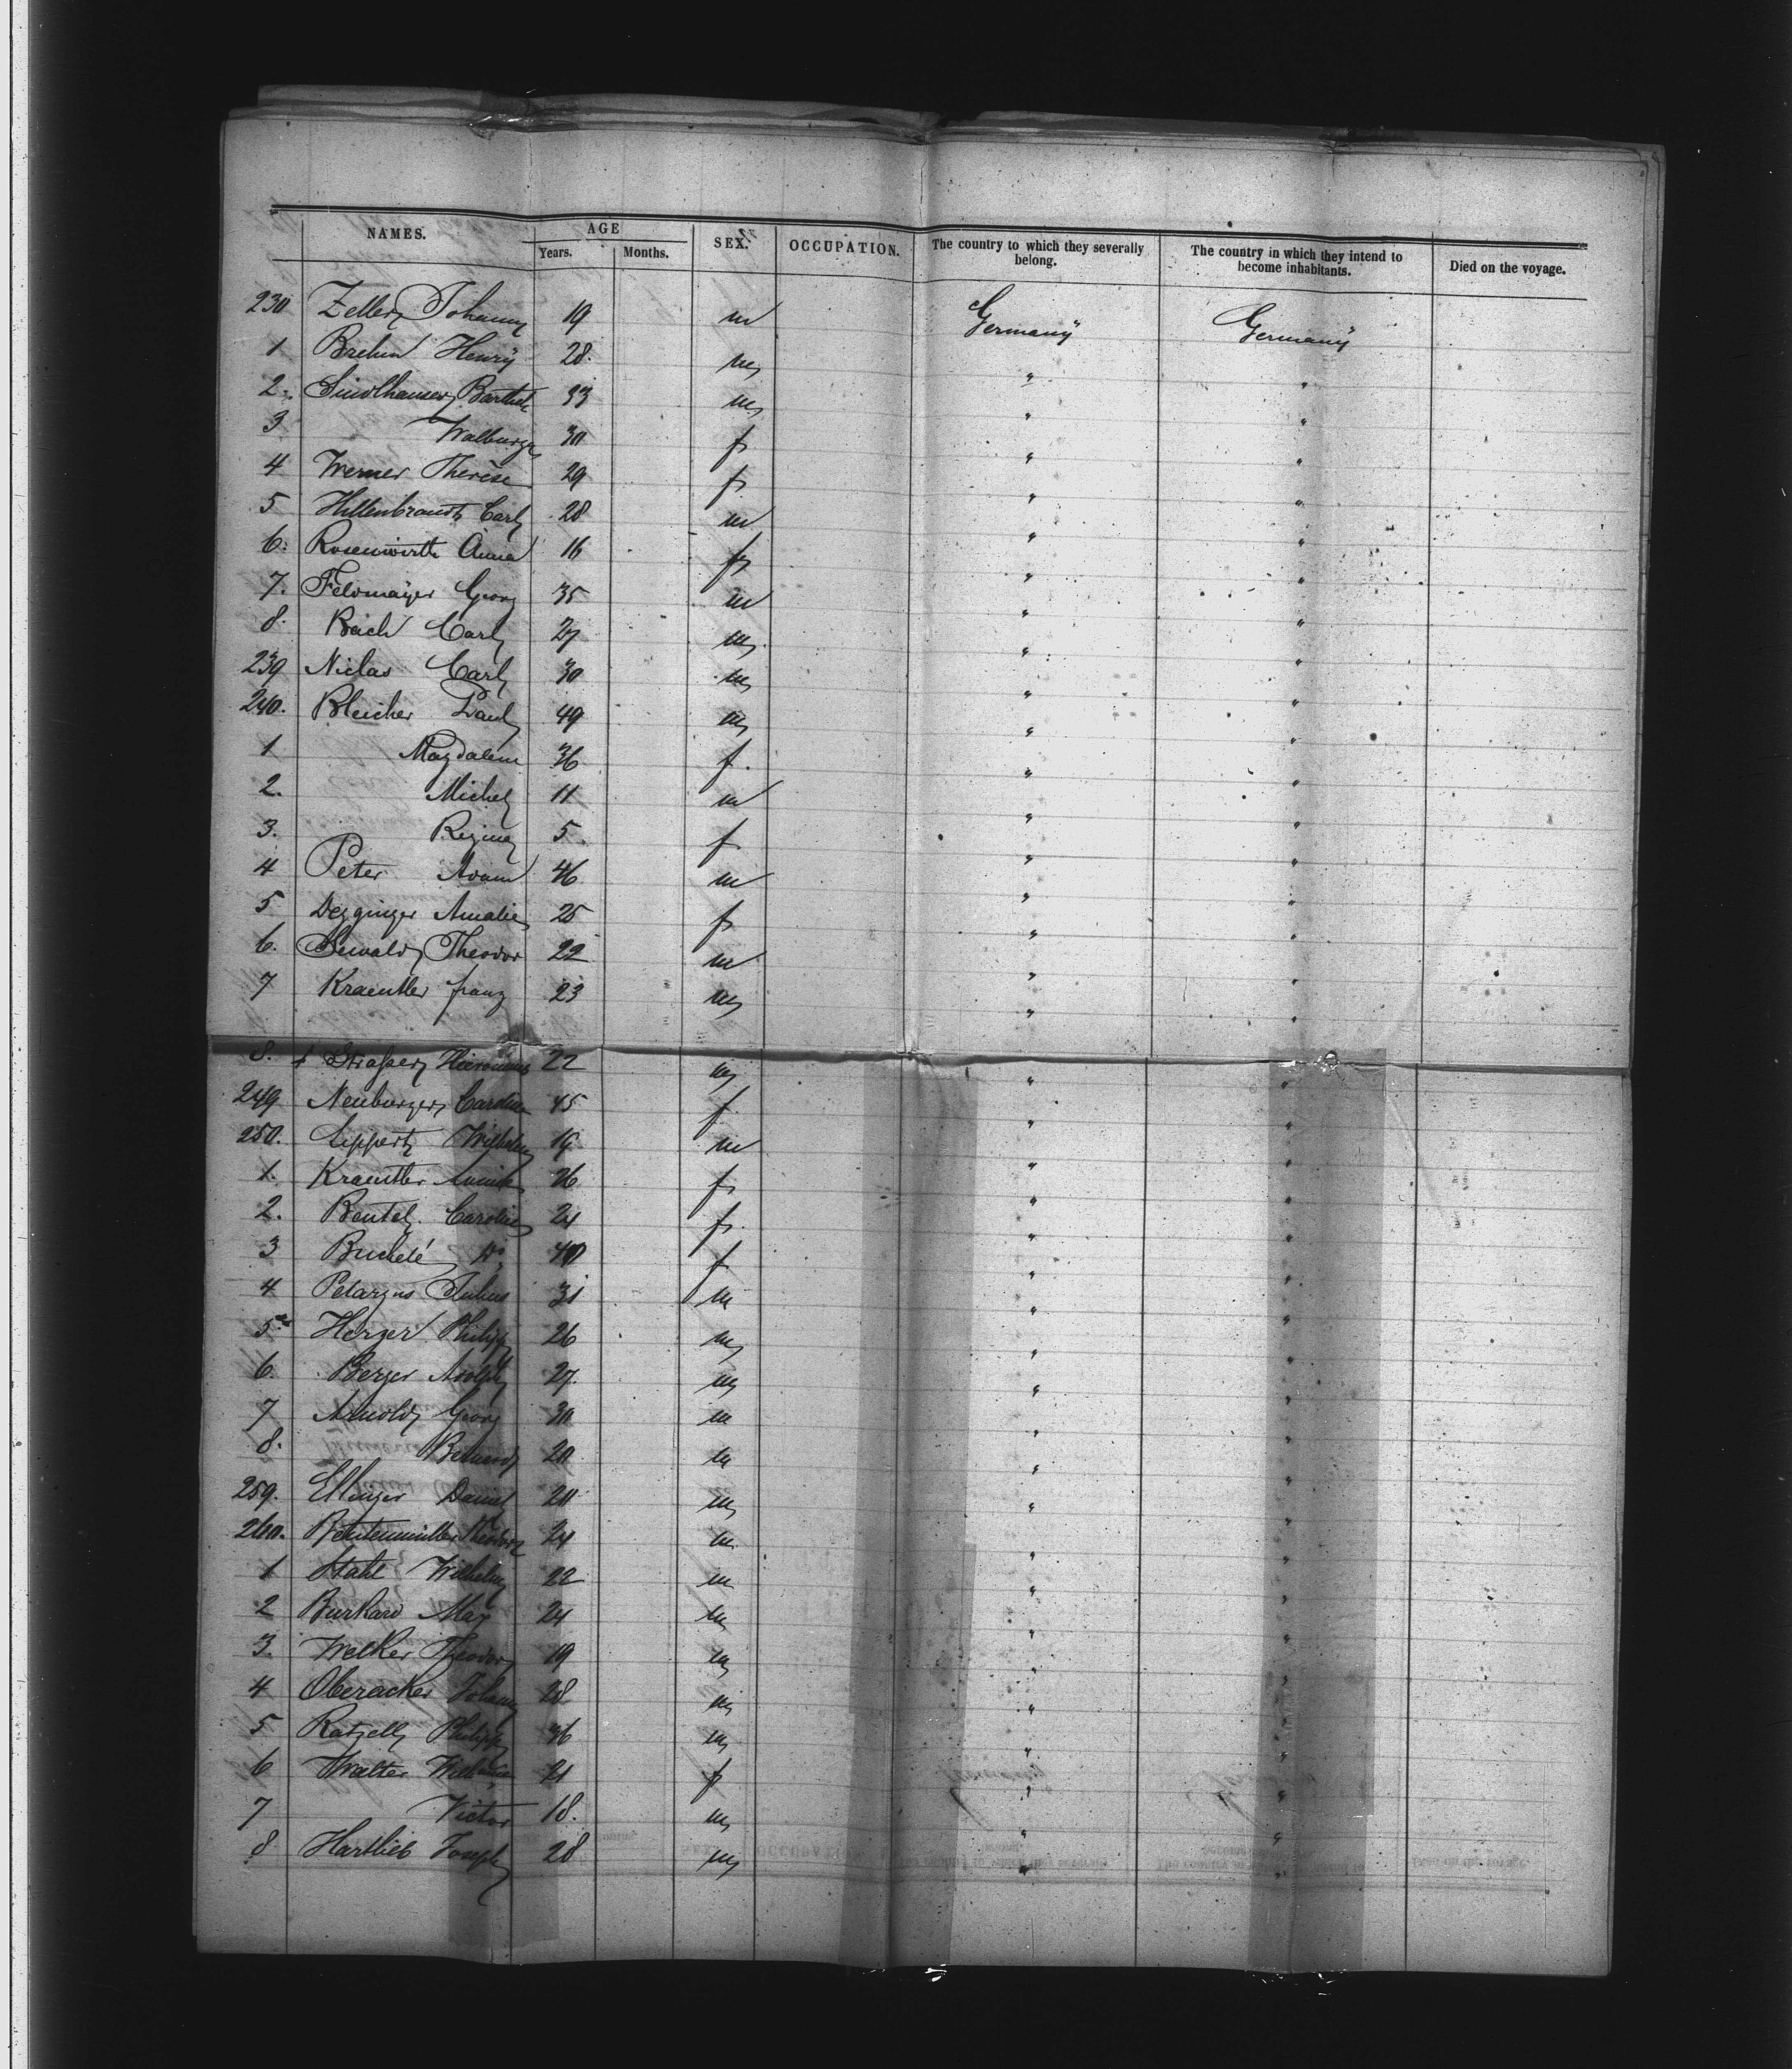 NAMES. AGE SEX. OCCUPATION. The country to which they severally belong. The country in which they intend to become inhabitants. Died on the voyage.
Years. Months.
230 Zeller Johann 19 m Germany Germany
1 Brehm Henry 28. m " "
2. Sindlhauser Barthel 33 m " "
3 Walburga 30 f " "
4 Werner Therese 29 f " "
5 Hillenbrandt Carl 28 m " "
6. Rosenwirth Anna 16 f " "
7. Feldmayer Georg 35 m " "
8. Bach Carl 27 m " "
239 Niclas Carl 30 m " "
240. Bleicher Paul 49 m " "
1 Magdalena 36 f. " "
2. Michel 11 m " "
3. Regina 5. f " "
4 Peter Adam 46 m " "
5 Degginger Amalie 25 f " "
6. Sewald Theodor 22 m " "
7 Kraentler franz 23 m " "
8. + Strasser Hieronimus 22 m " "
249 Neuburger Caroline 45 f " "
250. Lippert Wilhelm 19 m " "
1. Kraentler 26 f " "
2. Beutel. Caroline 24 f. " "
3 Buchelé Do 40 f " "
4 Petargus Julius 31 m " "
5 Herger Philipp 26 m " "
6. Berger Adolph 27. m " "
7 Arnold Georg 30 m " "
8. Bernard 20 m " "
259. Ellinger Daniel 20 m " "
260. Beutenmüller Theodor 24 m " "
1 Stahl Wilhelm 22 m " "
2 Burkard Max 24 m " "
3. Welker Theodor 19 m " "
4 Oberacker Johann 28 m " "
5 Ratzell Philipp 36 m " "
6 Walter 21 f " "
7 Victor 18. m " "
8 Hartlieb Joseph 28 m " "